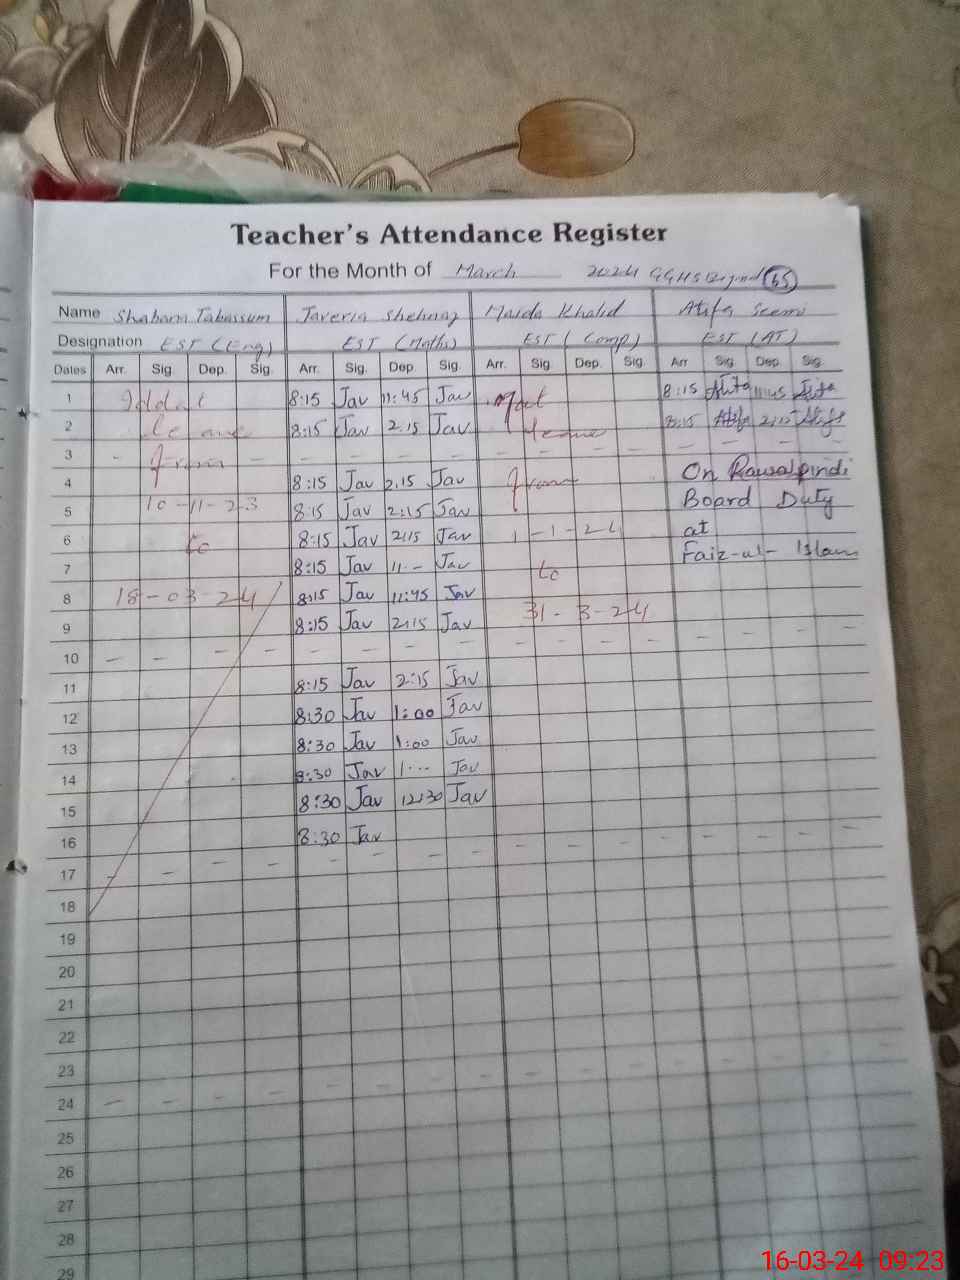 Teacher's Attendance Register
For the Month of March 2024 GGHS 65
Name Shabana Tabassum Javeria Shehnaz Maida Khalid Atifa Seemi
Designation EST (Eng) EST (Maths) EST (Comp) EST (AT)
Dates Arr. Sig. Dep. Sig. Arr. Sig. Dep. Sig. Arr. Sig. Dep. Sig. Arr Sig. Dep. Sig.
1 Iddat 8:15 Jav 11:45 Jav Mat 8:15 Atifa 11:45 Atifa
2 leave 8:15 Jav 2.15 Jav leave 8:15 Atifa 2:15 Atifa
3 - from - - - - - - - - - - - -
4 8:15 Jav 2.15 Jav from On Rawalpindi
5 10-11-23 8:15 Jav 2:15 Jav Board Duty
6 to 8:15 Jav 2:15 Jav 1-1-24 at
7 8:15 Jav 11-- Jav to Faiz-ul-Islam
8 18-03-24 8:15 Jav 11:45 Jav
9 8:15 Jav 2:15 Jav 31-3-24
10 - - - - - - - - - - - - - - - -
11 8:15 Jav 2:15 Jav
12 8:30 Jav 1:00 Jav
13 8:30 Jav 1:00 Jav
14 8:30 Jav 1... Jav
15 8:30 Jav 12:30 Jav
16 8:30 Jav
17 - - - - - - - - - - - - - - - -
18
19
20
21
22
23
24 - - - - - - - - - - - - - - - -
25
26
27
28
29
16-03-24 09:23